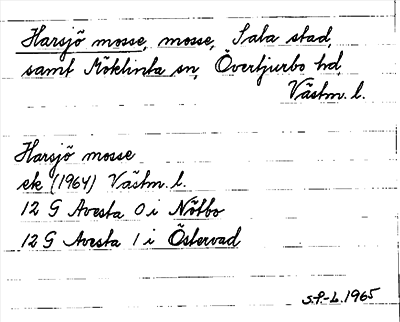 Harsjö mosse, mosse, Sala stad,
samt Möklinta sn, Övertjurbo hd,
Västm. l.
Harsjö mosse
ek (1964) Västm. l.
12 G Avesta 0 i Nötbo
12 G Avesta 1 i Östervad
S.P.-L. 1965